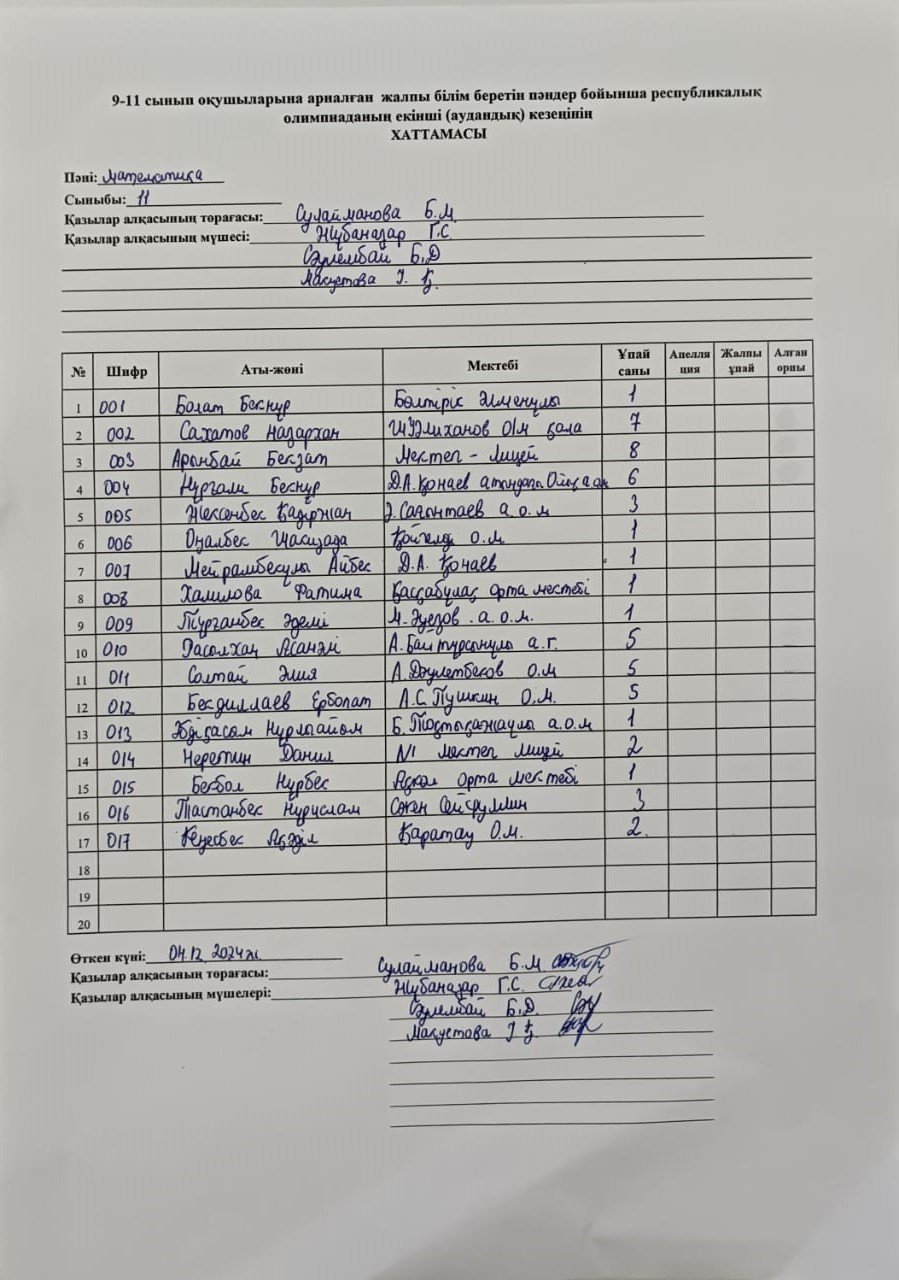 9-11 сынып оқушыларына арналған жалпы білім беретін пәндер бойынша республикалық
олимпиаданың екінші (аудандық) кезеңінің
ХАТТАМАСЫ
Пәні: Математика
Сыныбы: 11
Қазылар алқасының төрағасы: Сулайманова Б.М
Қазылар алқасының мүшесі: Жұбаназар Г.С.
Сәулембай Б.Д
Мақустова Г. Қ.
№ Шифр Аты-жөні Мектебі Ұпай саны Апелляция Жалпы ұпай Алған орны
1 001 Болат Бекнұр Бөлтірік Әлменұлы 1
2 002 Сахатов Назархан Ш.Уәлиханов о/м қала 7
3 003 Арынбай Бекзат Мектеп - лицей 8
4 004 Нұрғали Бекнұр Д.А.Қонаев атындағы 6
5 005 Жексенбек Қадіржан Ә. Сағынтаев а.о.м 3
6 006 Оңалбес Шахизада Қойгелді о.м. 1
7 007 Мейрамбекұлы Айбек Д.А. Қонаев 1
8 008 Халилова Фатима Қасқабұлақ орта мектебі 1
9 009 Тұрғанбек Әдемі М.Әуезов. а.о.м. 1
10 010 Расолхан Асанәлі А.Байтұрсынұлы а.г. 5
11 011 Солтай Әлия А.Дәулетбеков О.М 5
12 012 Бекдиллаев Ерболат А.С.Пушкин О.М. 5
13 013 Нұрлыайым Б. а.о.м 1
14 014 Неретин Данил №1 мектеп лицей 2
15 015 Бекбол Нұрбек Ақкөл орта мектебі 1
16 016 Тастанбек Нұрислам Сәкен Сейфуллин 3
17 017 Кеңесбек Ақәділ Қаратау О.М. 2
18
19
20
Өткен күні: 04.12.2024ж
Қазылар алқасының төрағасы: Сулайманова Б.М
Қазылар алқасының мүшелері: Жұбаназар Г.С.
Сәулембай Б.Д.
Мақустова Г Қ